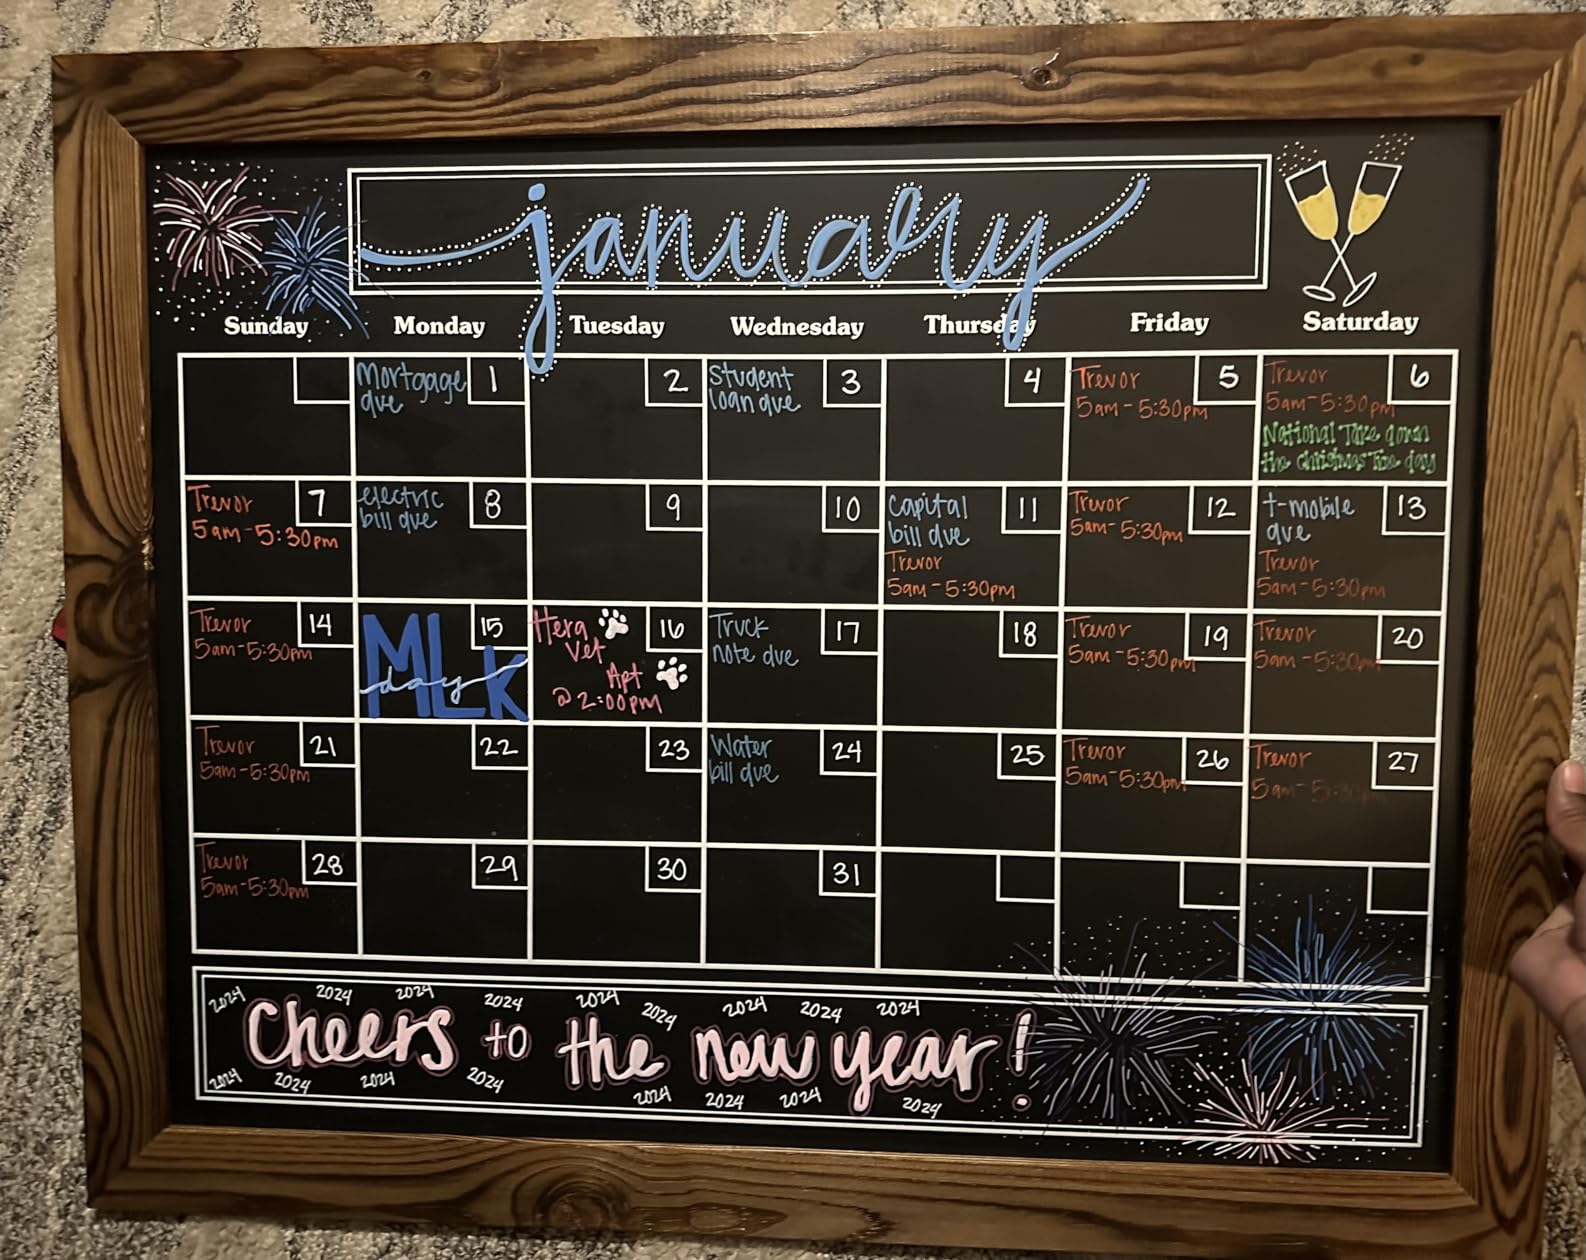 january
Sunday Monday Tuesday Wednesday Thursday Friday Saturday
Mortgage due
1
2
Student loan due
3
4
Trevor
5am-5:30pm
5
Trevor
5am-5:30pm
6
National Take down
the Christmas Tree day
Trevor
5am-5:30pm
7
electric
bill due
8
9
10
Capital
bill due
11
Trevor
5am-5:30pm
Trevor
5am-5:30pm
12
t-mobile
due
13
Trevor
5am-5:30pm
Trevor
5am-5:30pm
14
MLK
day
15
Hera
Vet
Apt
@ 2:00pm
16
Truck
note due
17
18
Trevor
5am-5:30pm
19
Trevor
5am-5:30pm
20
Trevor
5am-5:30pm
21
22
23
Water
bill due
24
25
Trevor
5am-5:30pm
26
Trevor
5am-5:30pm
27
Trevor
5am-5:30pm
28
29
30
31
2024 2024 2024 2024 2024 2024 2024 2024 2024
Cheers to the new year!
2024 2024 2024 2024 2024 2024 2024 2024